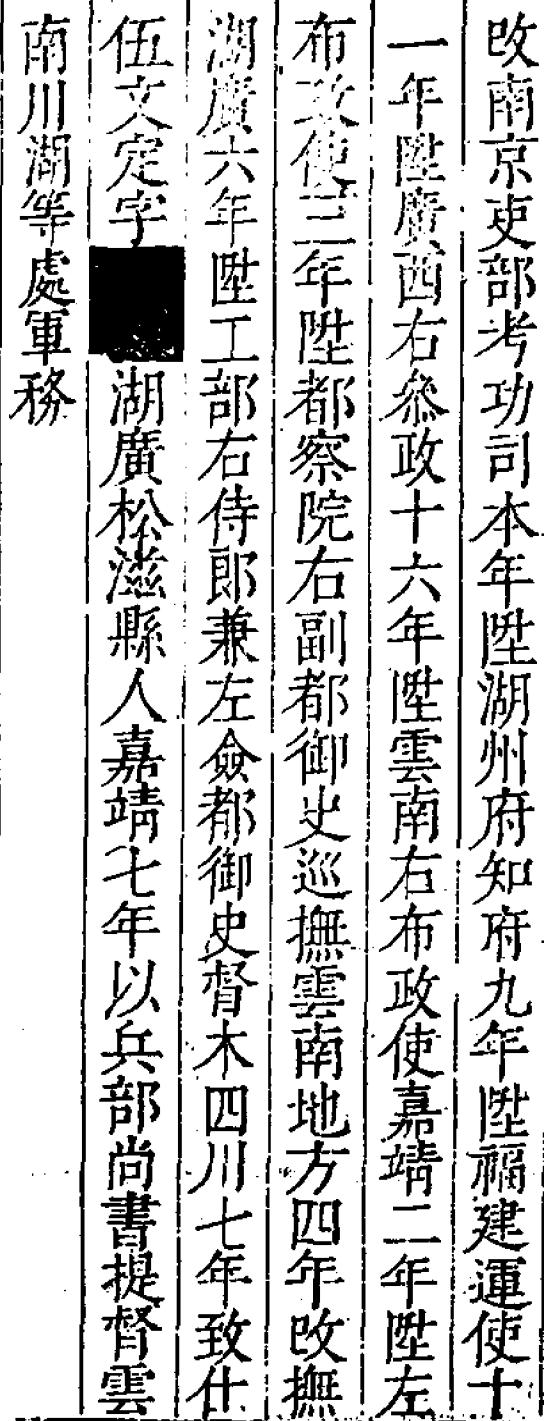 改南京吏部考功司本年陞湖州府知府九年陞福建運使十
一年陞廣西右叅政十六年陞雲南右布政使嘉靖二年陞左
布政使三年陞都察院右副都御史巡撫雲南地方四年改撫
湖廣六年陞工部右侍郎兼左僉都御史督木四川七年致仕
伍文定字湖廣松滋縣人嘉靖七年以兵部尚書提督雲
南川湖等處軍務